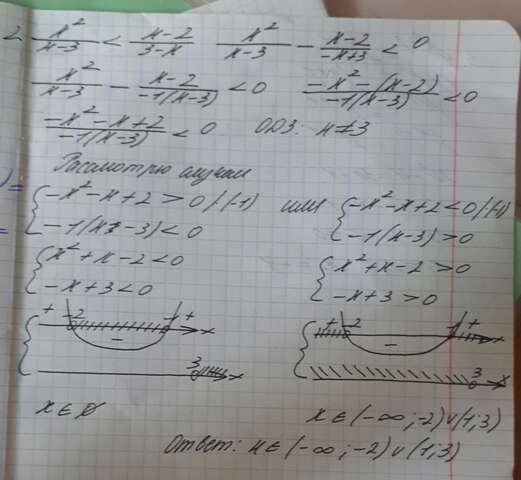 2 x²/(x-3) < (x-2)/(3-x)   x²/(x-3) - (x-2)/(-x+3) < 0
x²/(x-3) - (x-2)/(-1(x-3)) < 0   (-x²-(x-2))/(-1(x-3)) < 0
(-x²-x+2)/(-1(x-3)) < 0   ОДЗ: x≠3
Расмотрю случаи
{ -x²-x+2 > 0 /(-1)   или   { -x²-x+2 < 0 /(-1)
-1(x-3) < 0   -1(x-3) > 0
{ x²+x-2 < 0   { x²+x-2 > 0
-x+3 < 0   -x+3 > 0
{ + -2 - 1 + x   { + -2 - 1 + x
3 x   3 x
x ∈ ∅   x ∈ (-∞; -2) ∪ (1; 3)
Ответ: x ∈ (-∞; -2) ∪ (1; 3)